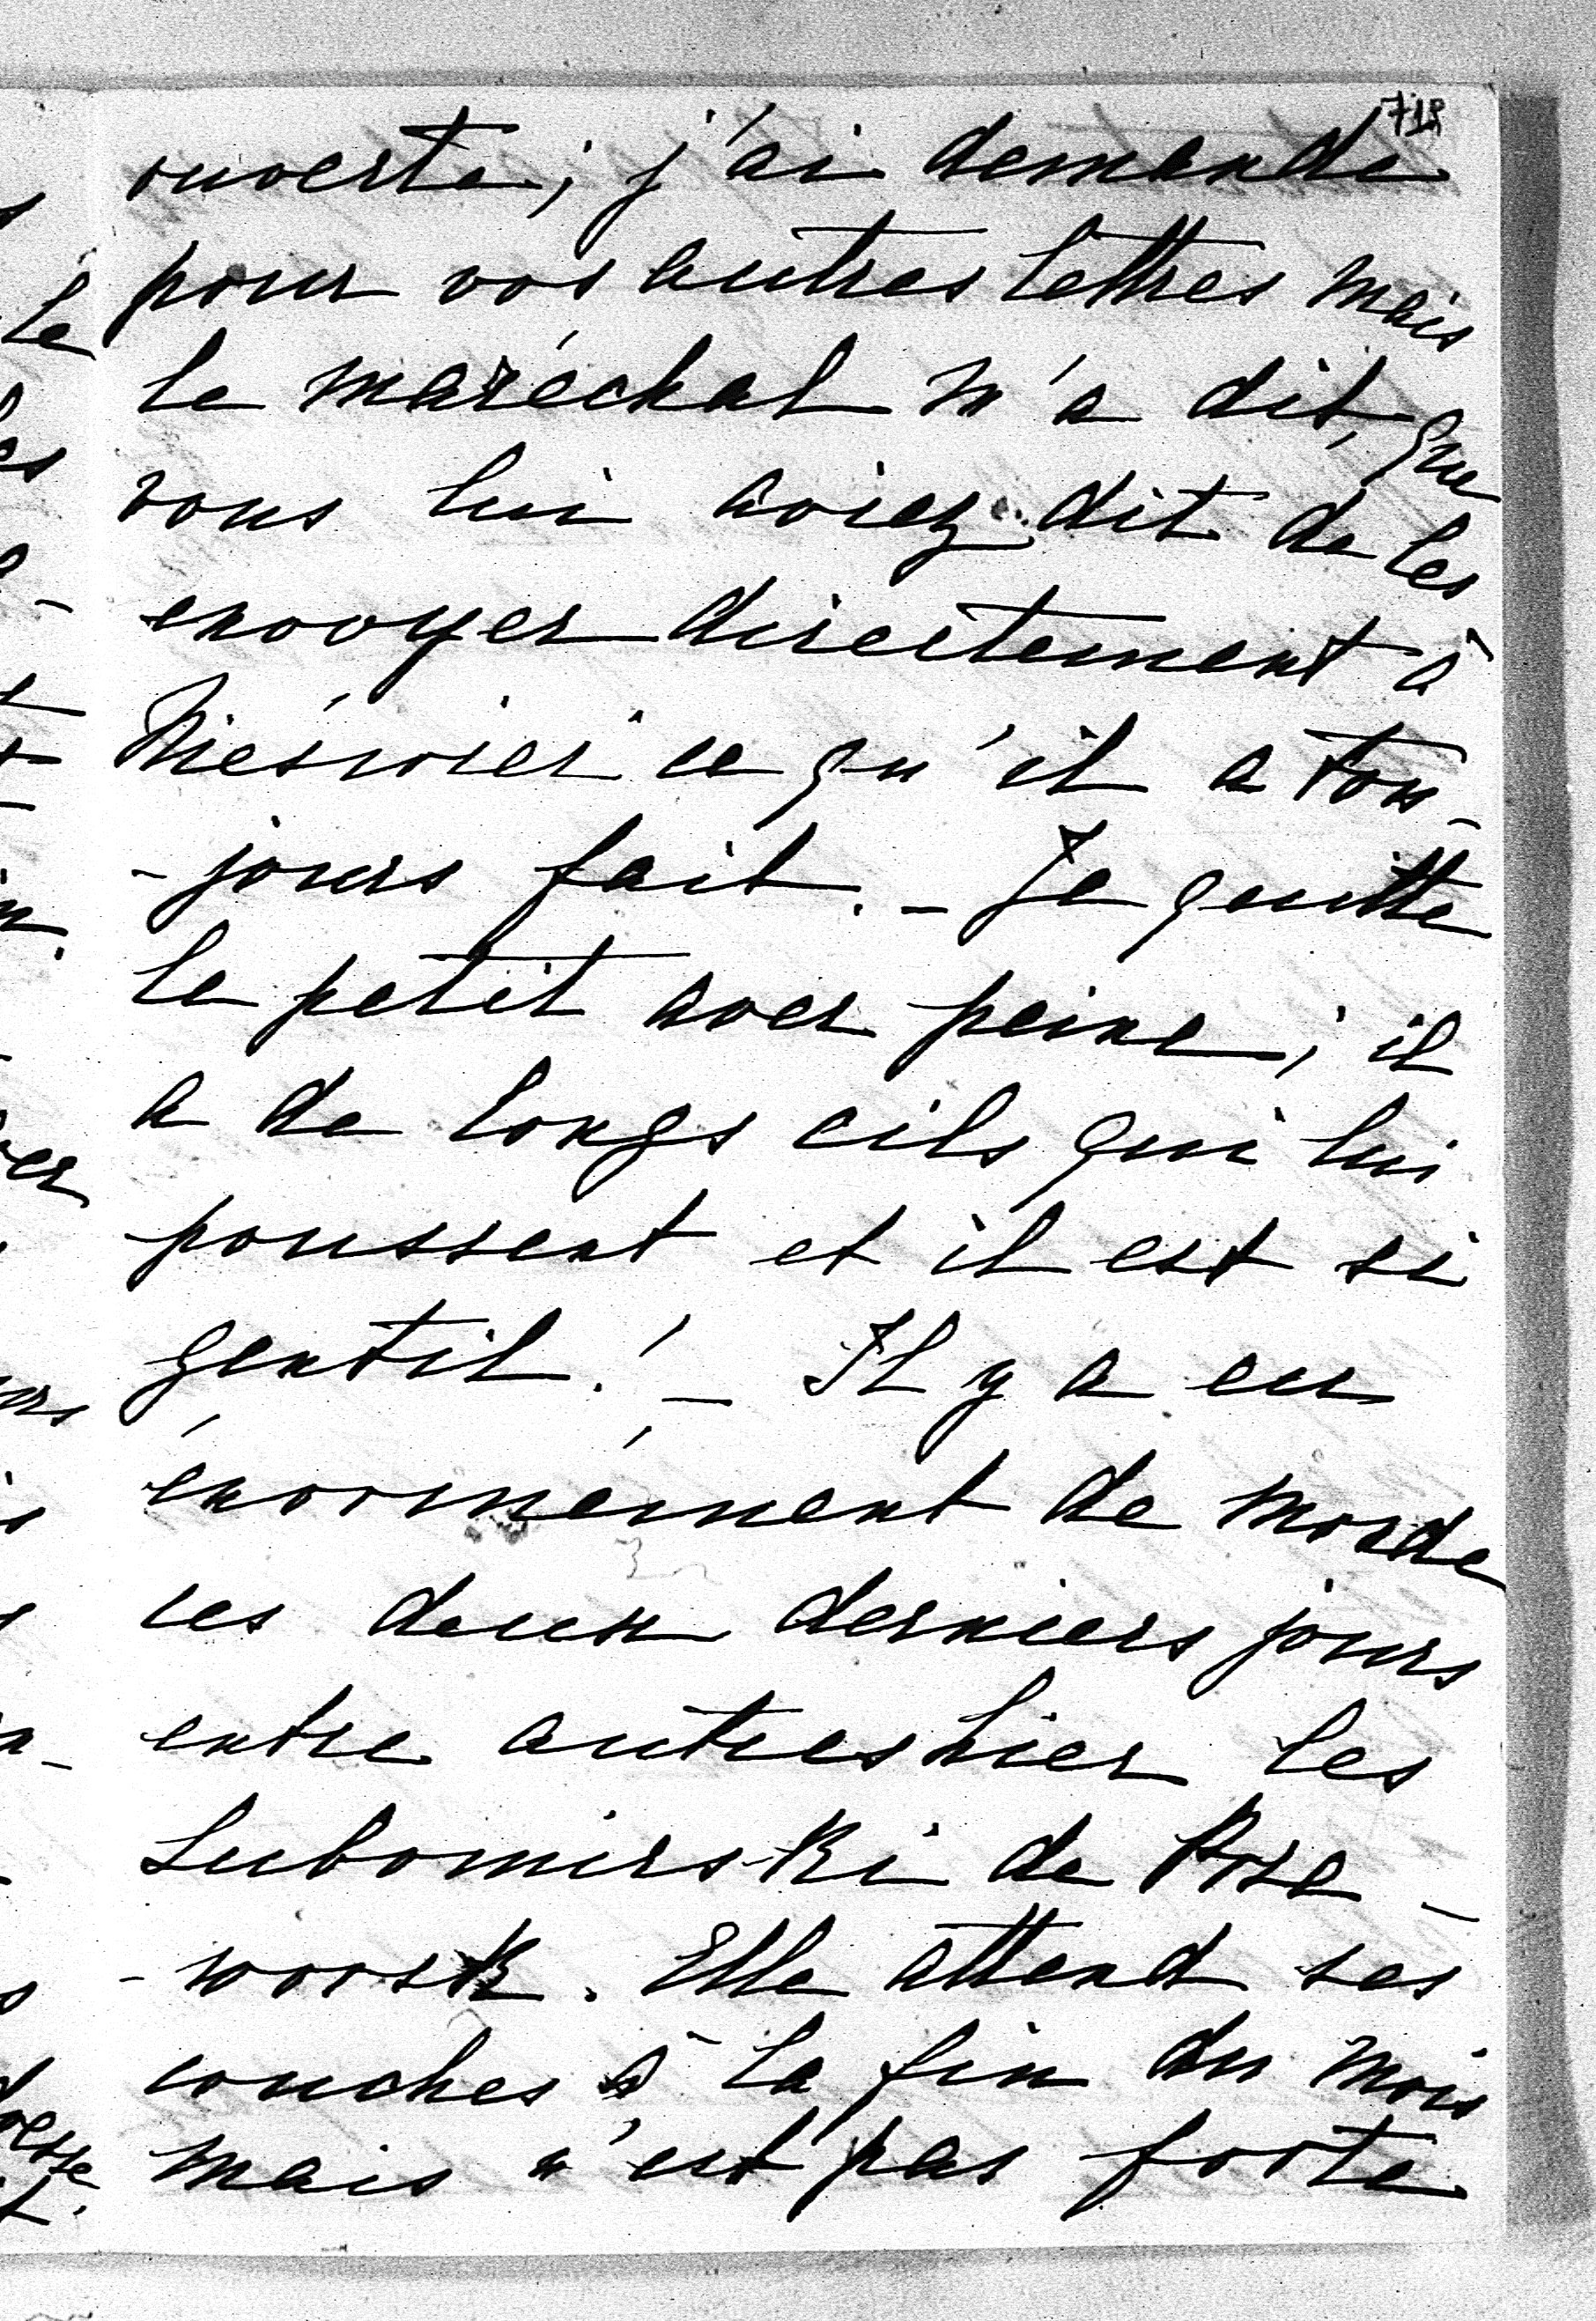 719
ouverte; j'ai demandé
pour vos autres lettres mais
le maréchal m'a dit, que
vous lui aviez dit de les
envoyer directement à
Nieśwież ce qu'il a tou-
-jours fait. - Je quitte
le petit avec peine; il
a de longs cils qui lui
poussent et il est si
gentil! - Il y a eu
énormément de monde
ces deux derniers jours
entre autres hier les
Lubomirski de Prze-
-worsk. Elle attend ses
couches à la fin du mois
mais n'est pas forte